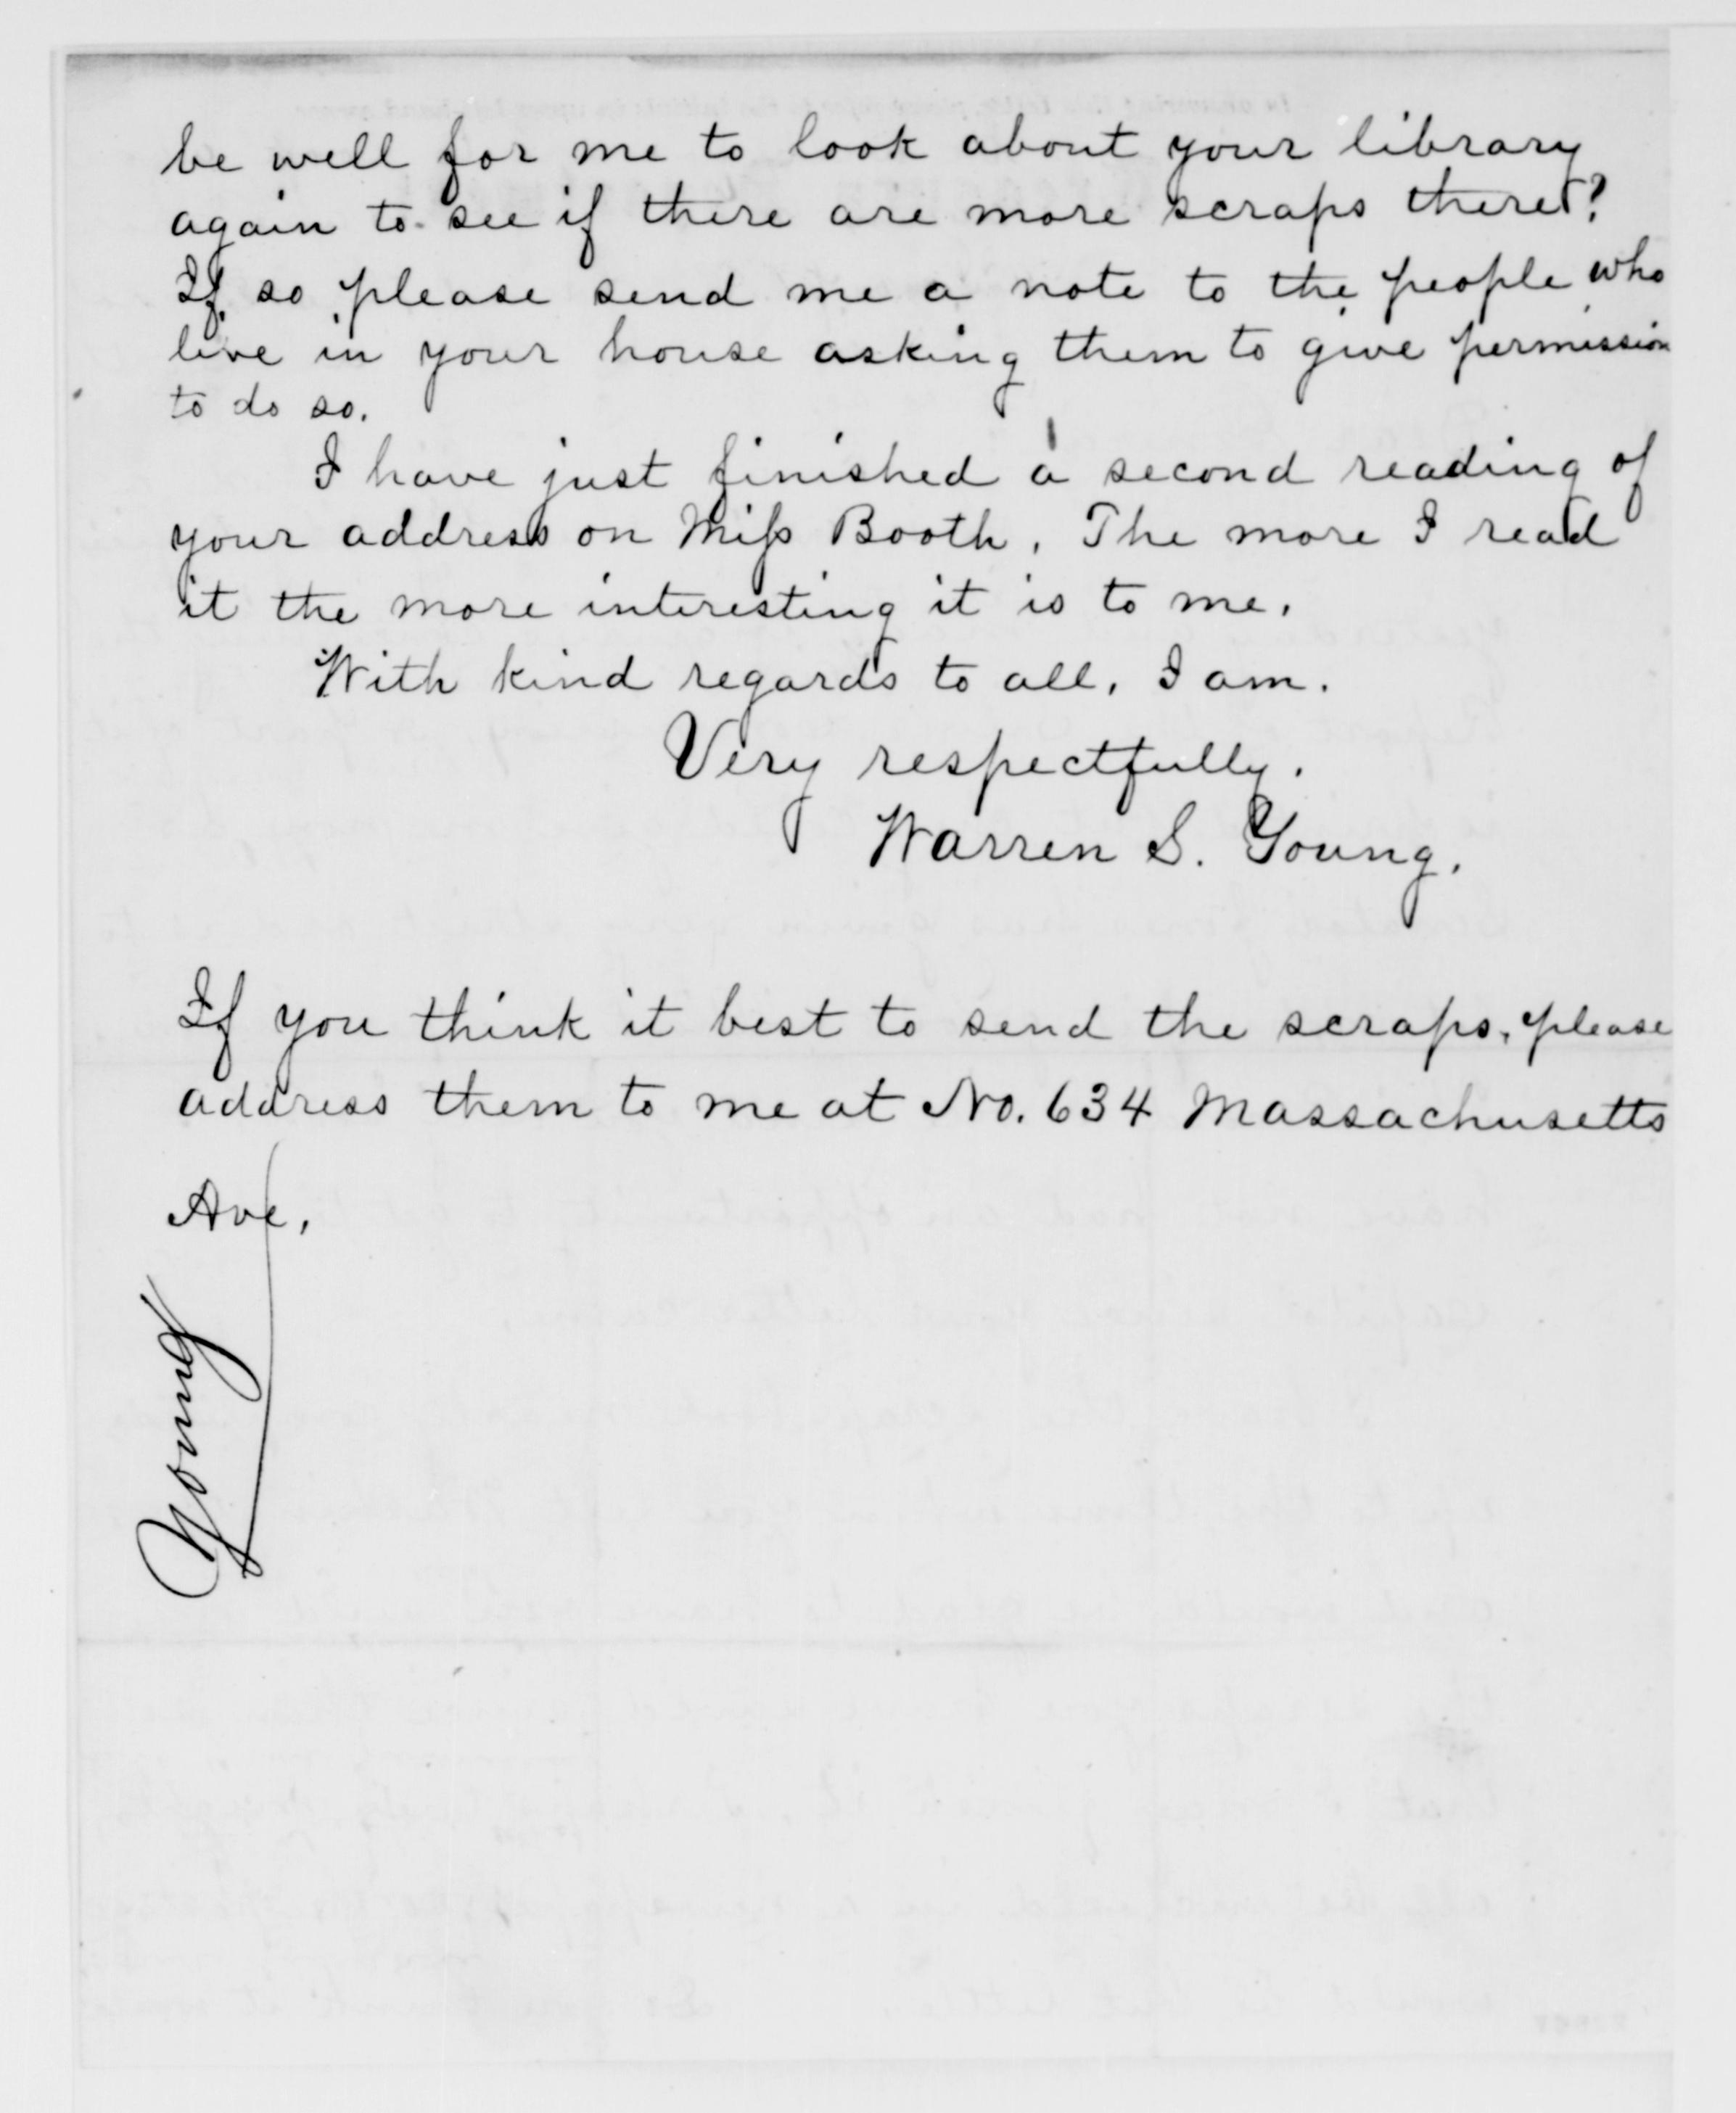 be well for me to look about your library
again to see if there are more scraps there?
If so please send me a note to the people who
live in your house asking them to give permission
to do so.
I have just finished a second reading of
your address on Miss Booth. The more I read
it the more interesting it is to me.
With kind regards to all, I am.
Very respectfully.
Warren S. Young.
If you think it best to send the scraps, please
address them to me at No. 634 Massachusetts
Ave.
Young